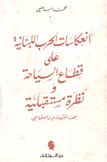 محمد صافي
انعكاسات الحرب اللبنانية
على
قطاع السياحة
و
نظرة مستقبلية